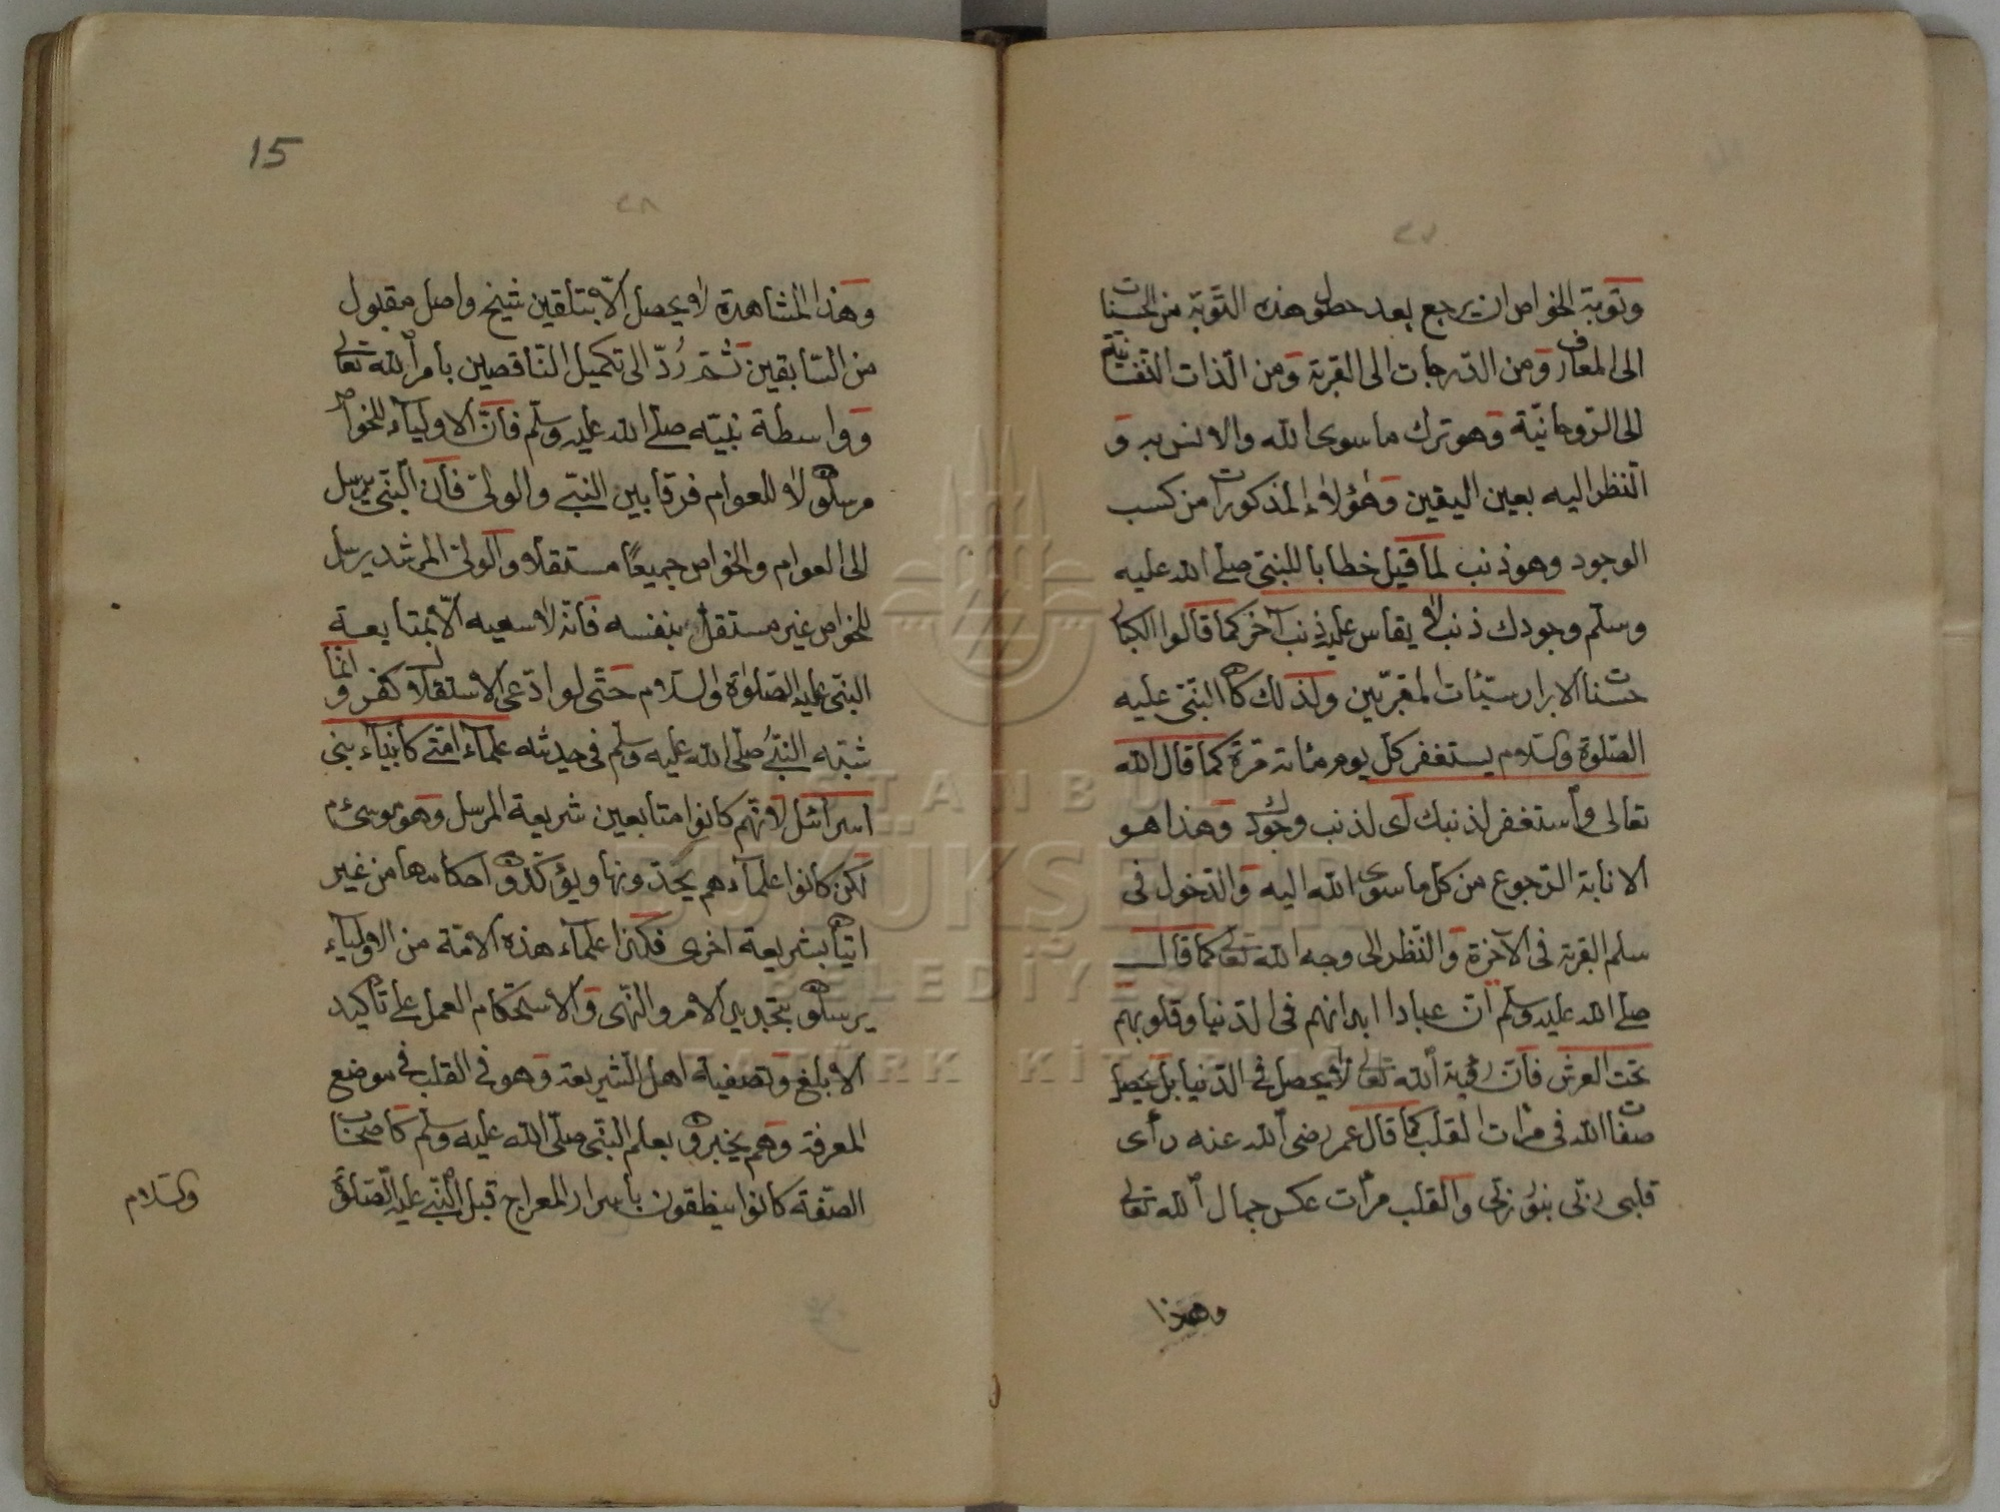 وتوبة الخواص ان يرجع بعد حصول هذه التوبة من الحسنات
الى المعارف ومن الدرجات الى القربة ومن الذات النفسانية
الى الروحانية وهو ترك ما سوى الله والانس به و
النظر اليه بعين اليقين وهؤلاء المذكورات من كسب
الوجود وهو ذنب لما قيل خطابا للنبي صلى الله عليه
وسلم وجودك ذنب لا يقاس عليه ذنب آخر كما قالوا الكبار
حسنات الابرار سيئات المقربين ولذلك كان النبي عليه
الصلوة والسلام يستغفر كل يوم مائة مرة كما قال الله
تعالى واستغفر لذنبك اى لذنب وجودك وهذا هو
الانابة الرجوع من كل ما سوى الله اليه والدخول فى
سلم القربة فى الآخرة والنظر الى وجه الله تعالى كما قال
صلى الله عليه وسلم ان عبادا ابدانهم فى الدنيا وقلوبهم
تحت العرش فان رؤية الله تعالى لا يحصل فى الدنيا بل يحصل
صفات الله فى مرات القلب كما قال عمر رضى الله عنه رأى
قلبى ربى بنور ربى والقلب مرات عكس جمال الله تعالى
وهذا
15
٢٨
وهذا المشاهدة لا يحصل الا بتلقين شيخ واصل مقبول
من السابقين ثم رُدّ الى تكميل الناقصين بامر الله تعالى
وواسطة نبيه صلى الله عليه وسلم فان الاولياء للخواص
مرسلون لا للعوام فرقا بين النبى والولى فان النبى يرسل
الى العوام والخواص جميعًا مستقلا والولى المرشد يرسل
للخواص غير مستقل بنفسه فانه لا سعيه الا بمتابعة
النبى عليه الصلوة والسلام حتى لو ادعى الاستقلال كفر وانما
شبه النبى صلى الله عليه وسلم فى حديثه علماء امتى كانبياء بنى
اسرائل لانهم كانوا متابعين شريعة المرسل وهو موسىٰ م
لكن كانوا علماءهم يجددونها ويؤكدون احكامها من غير
اتيان بشريعة اخرى فكذا علماء هذه الامة من الاولياء
يرسلون بتجديد الامر والنهى والاستحكام العمل على تأكيد
الابلغ وتصفية اهل الشريعة وهو فى القلب فى موضع
المعرفة وهم يخبرون بعلم النبى صلى الله عليه وسلم كاصحاب
الصفة كانوا ينطقون باسرار المعراج قبل النبى عليه الصلوة
والسلام
ISTANBUL
BÜYÜKŞEHİR
BELEDİYESİ
ATATÜRK KİTAPLIĞI